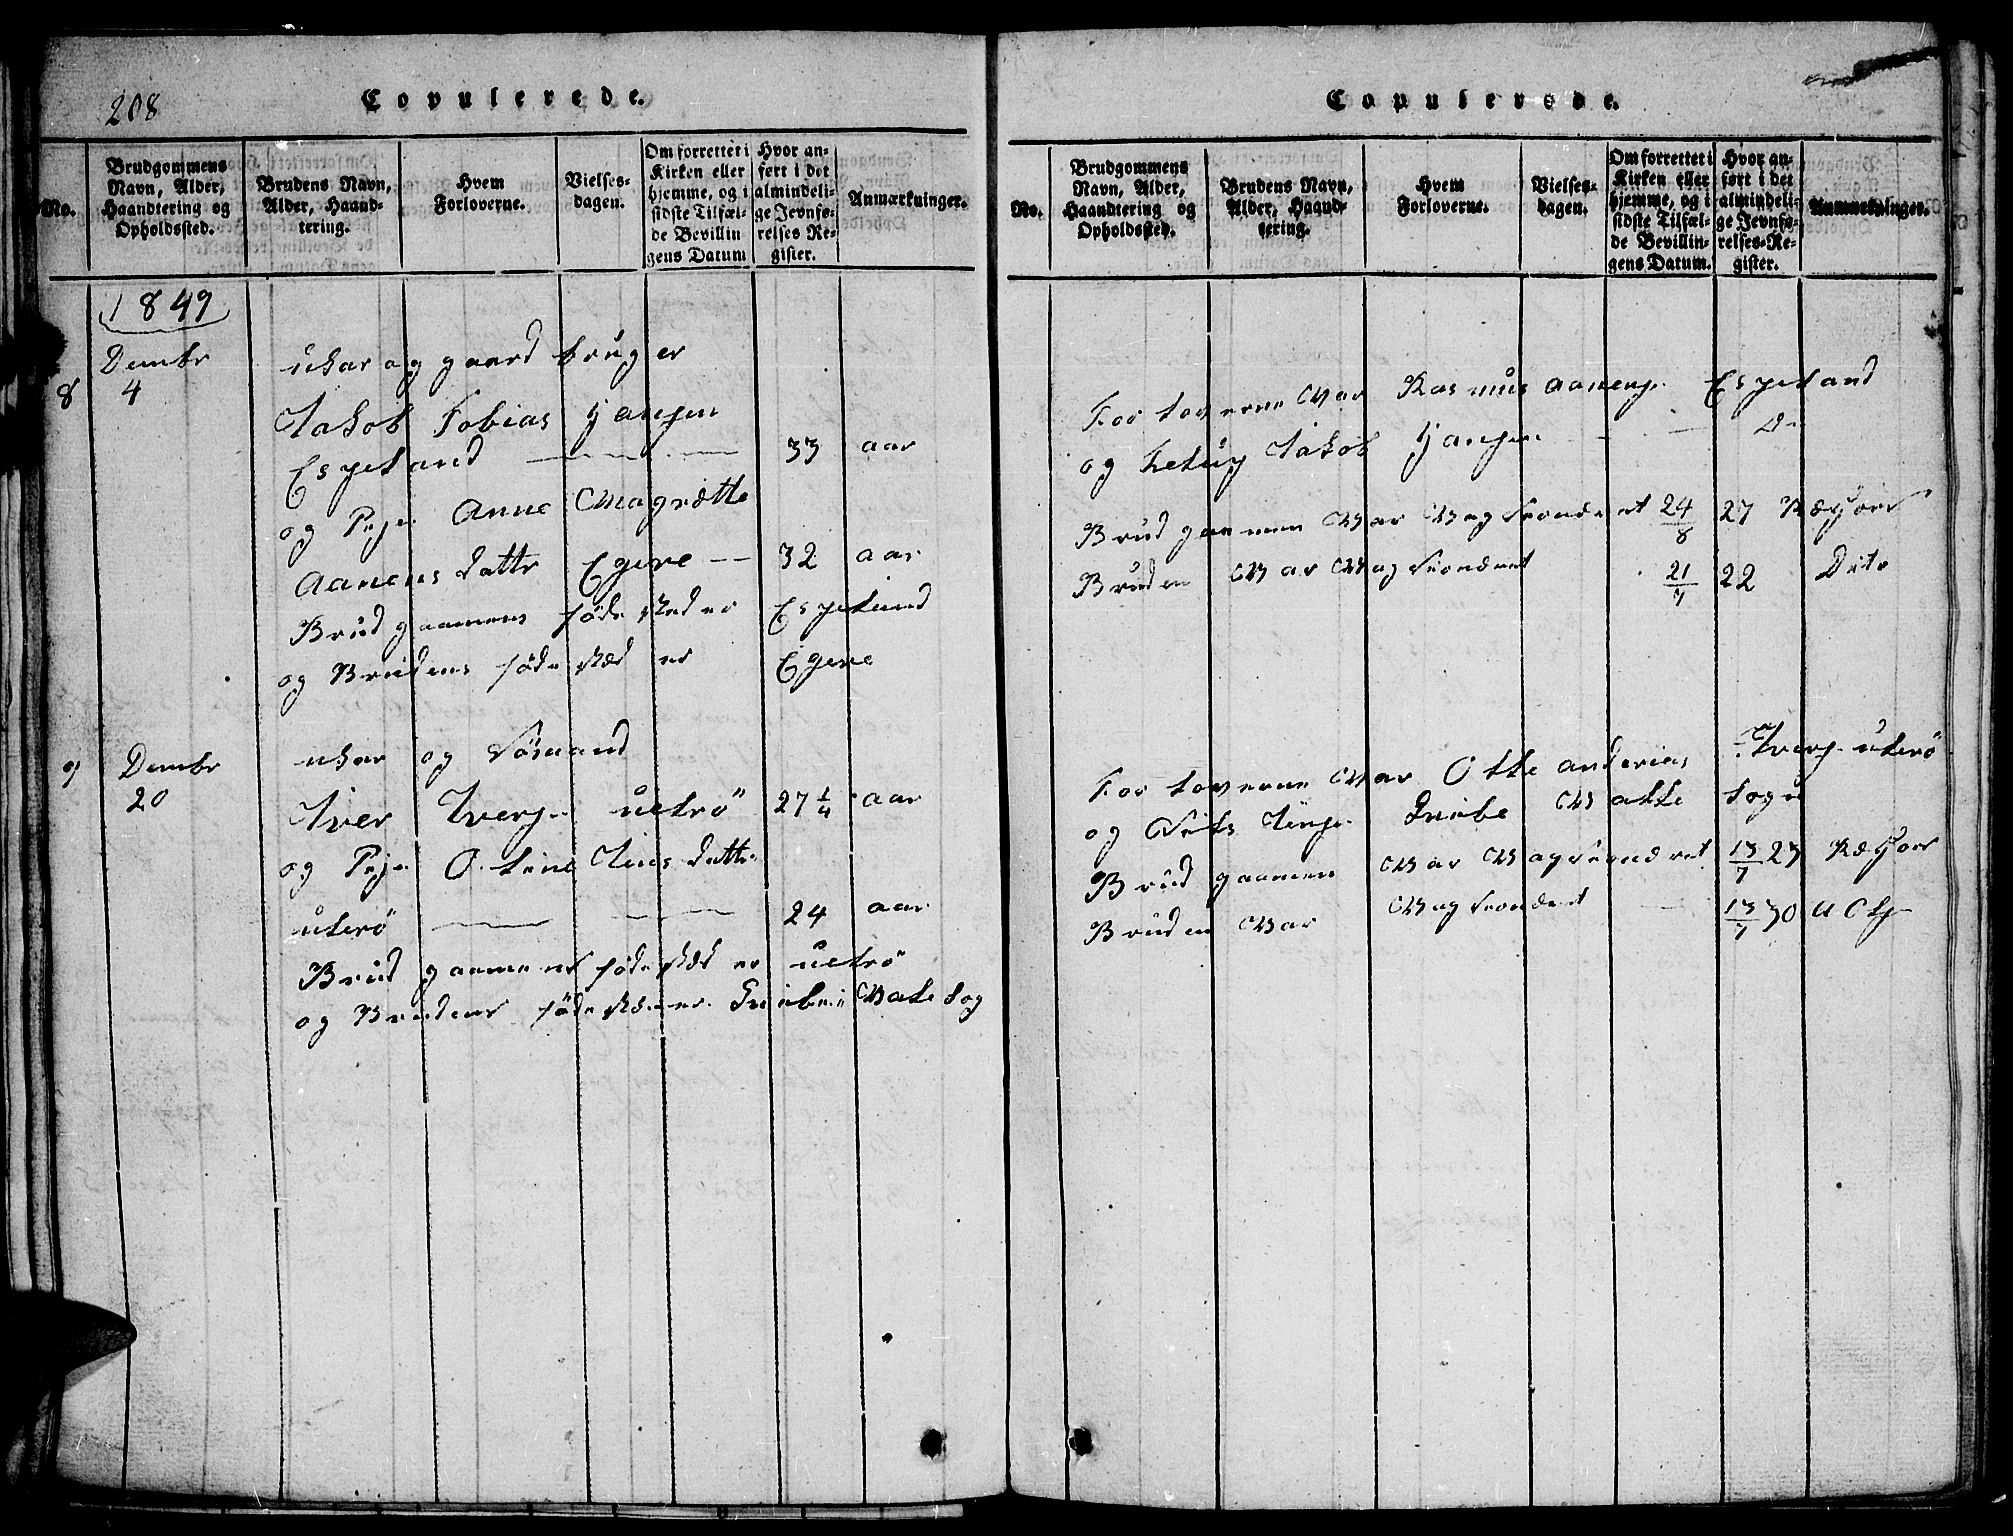 208
Copulerede.
No.
Brudgommens Navn, Alder, Haandtering og Opholdssted.
Brudens Navn, Alder, Haandtering.
Hvem Forloverne.
Vielsesdagen.
Om forrettet i Kirken eller hjemme, og i sidste Tilfælde Bevillingens Datum
Hvor anført i det almindelige Jevnførelses Register.
Anmærkninger.
1849
8
Dembr
4
ukar og gaard bruger
Jakob Tobias Hansen
Espeland 33 aar
og Pige Anne Magrætte
Aanens datter Egere 32 aar
Brudgaamens føde sted er Espeland
og Brudens føde sted er Egere
9
Dembr
20
ukar og Søemand
Iver Iversen uterø 27 1/4 aar
og Pige O. tine Jens datter
uterø 24 aar
Brudgaamens føde sted er uterø
og Brudens føde sted er Griebe i Valle sog
Copulerede.
No.
Brudgommens Navn, Alder, Haandtering og Opholdssted.
Brudens Navn, Alder, Haandtering.
Hvem Forloverne.
Vielsesdagen.
Om forrettet i Kirken eller hjemme, og i sidste Tilfælde Bevillingens Datum.
Hvor anført i det almindelige Jevnførelses-Register.
Anmærkninger.
Forloverne var Rasmus Aanens. Espeland
og Jakob Hansen Do
Brudgaamen Var Vagsionæret 24/8 27
Bruden Var Vagsionæret 21/7 22 Dito
Forloverne var Otte anderias Ivers. uterø
og Jens. Griebe Valle sogn
Brudgaamen Var Vagsionæret 13/7 23
Bruden Var Vagsionæret 13/7 30